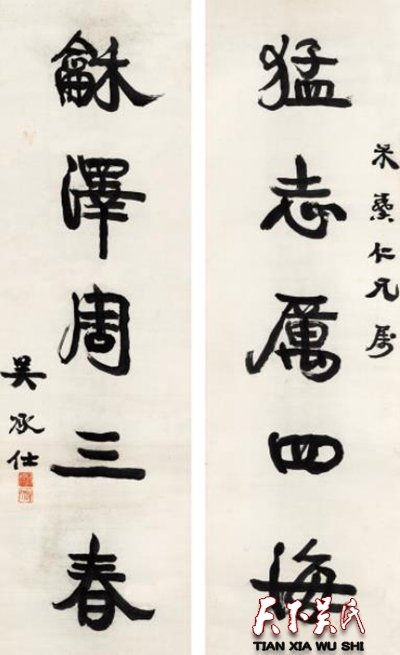 仁兄屬
猛志厲四海
龢澤周三春
吳承仕
天下吴氏
TIAN XIA WU SHI